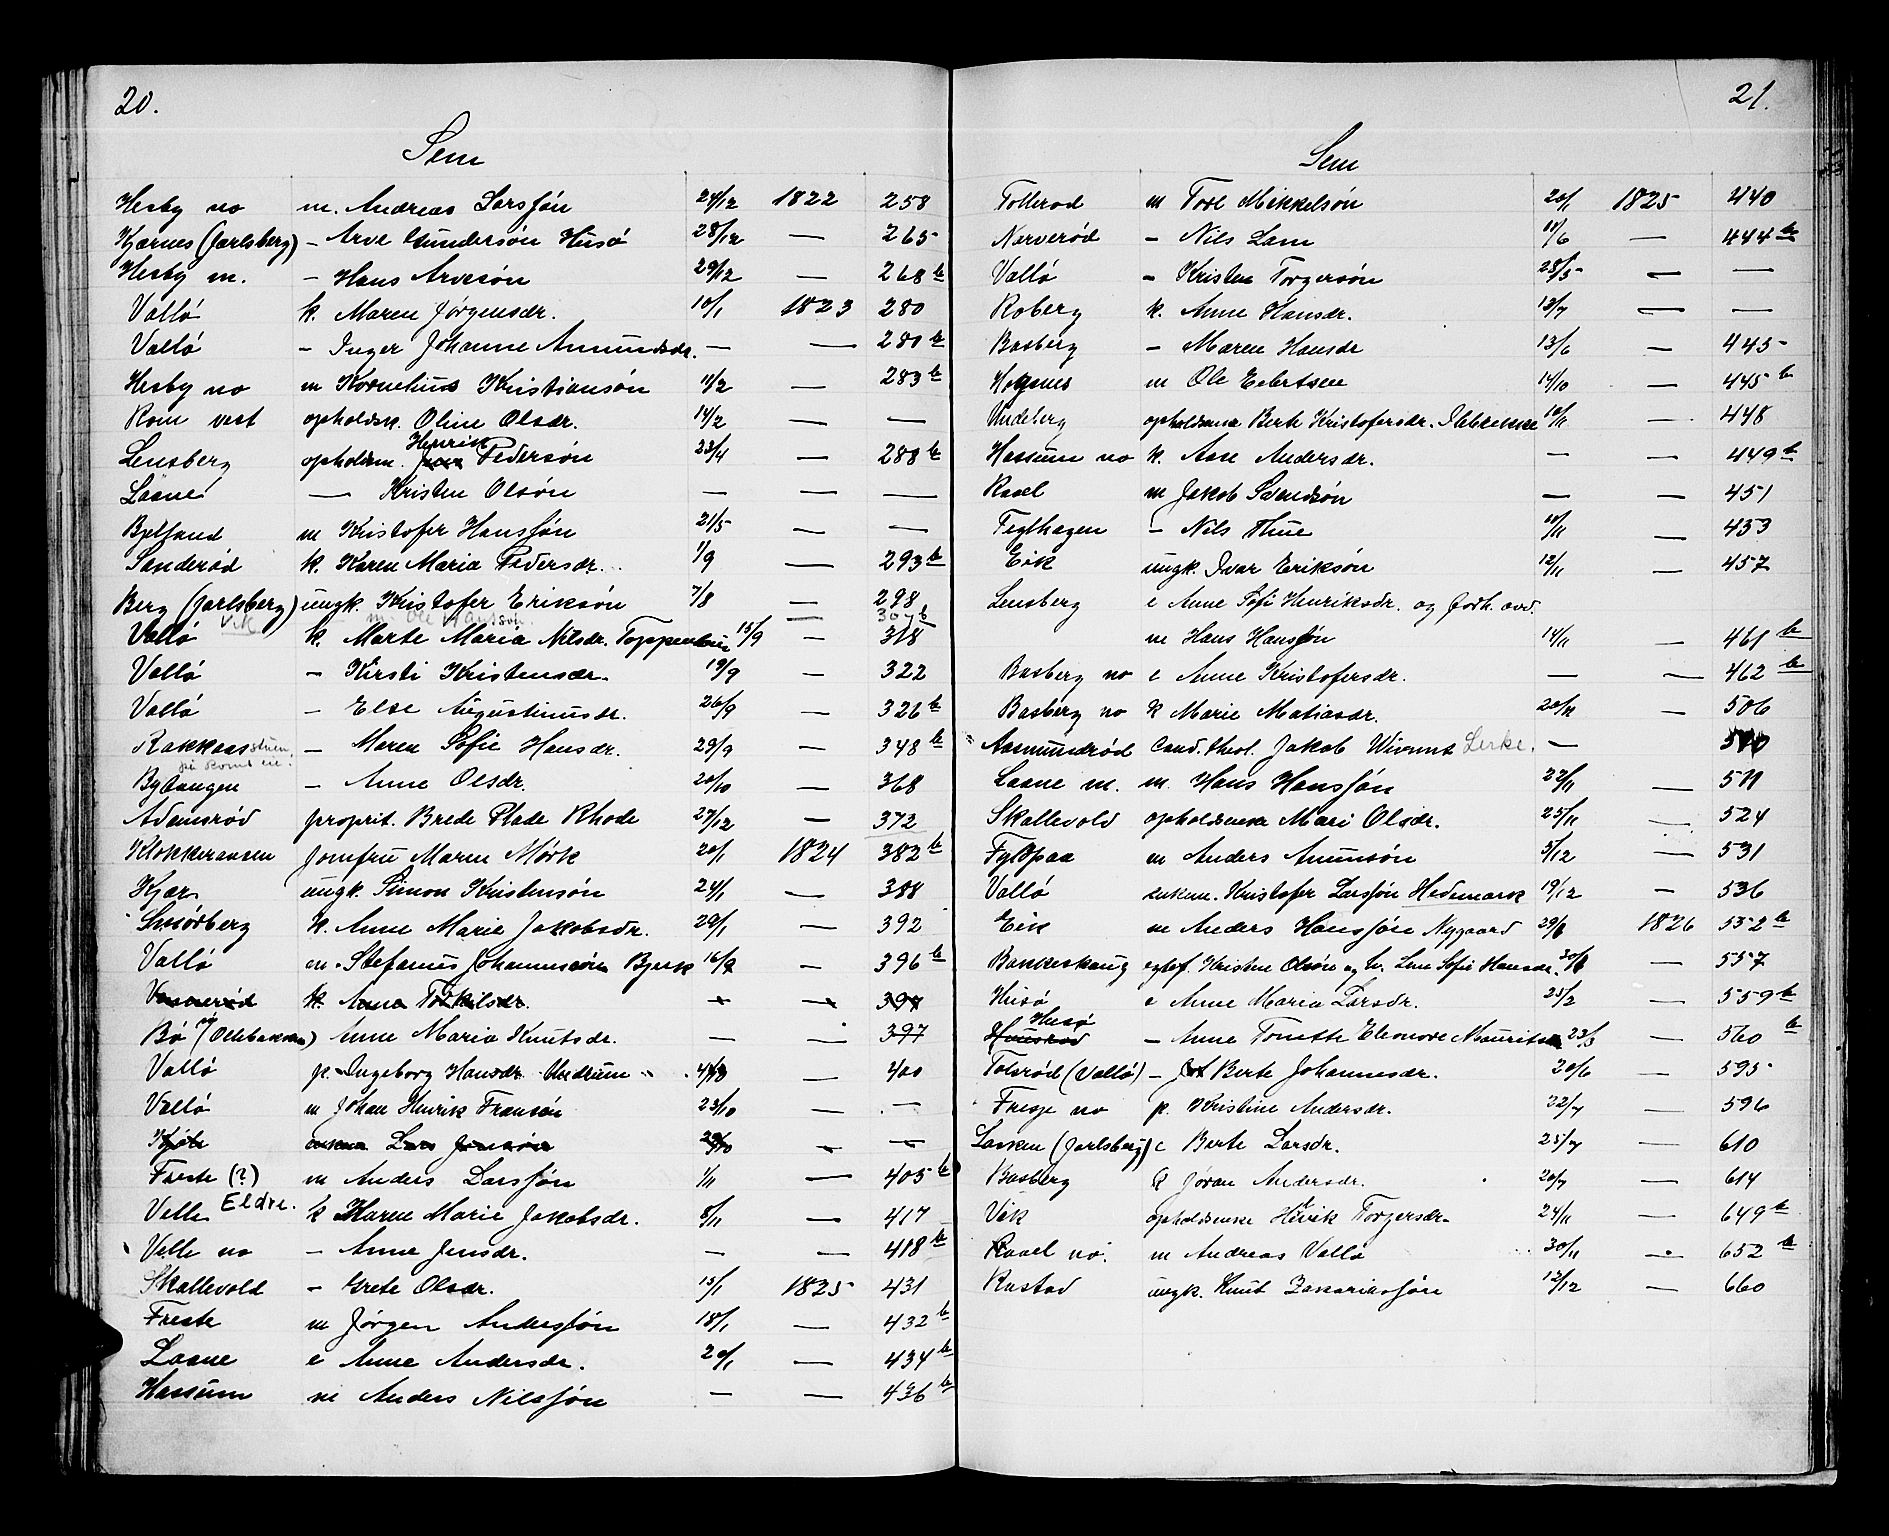 20.
Sem
Hesby no m. Andreas Larssøn 24/12 1822 258
Kjærnes (Jarlsberg) – Arve Gundersøn Husø 28/12 — 265
Hesby m. – Hans Arvesøn 29/12 — 268 b
Vallø k. Maren Jørgensdr. 10/1 1823 280
Vallø – Inger Johanne Amundsdr. — — 280 b
Hesby no m Kornelius Kristiansøn 11/2 — 283 b
Rom vest opholdsk. Oline Olsdr. 14/2 — —
Lensberg opholdsm. Henrik Pedersøn 23/4 — 288 b
Laane — Kristen Olsøn — — —
Bjelland m Kristofer Hanssøn 21/5 — —
Sanderød k. Karen Maria Pedersdr. 1/9 — 293 b
Berg (Jarlsberg) ungk. Kristofer Eriksøn 7/8 — 298
Vik m. Ole Hanssøn. — 307 b
Vallø k. Marte Maria Nilsdr. Toppenhaug 15/9 — 318
Vallø – Kirsti Kristensdr. 19/9 — 322
Vallø – Else Augustinusdr. 26/9 — 326 b
Rakkaasstuen – Maren Sofie Hansdr. 29/9 — 348 b
Bytangen – Anne Olsdr. 20/10 — 368
Adamsrød proprit. Brede Plade Rhode 27/12 — 372
Klokkeraasen Jomfru Maren Mørk 20/1 1824 382 b
Kjær ungk. Simon Kristensøn 24/1 — 388
Smørberg k. Anne Marie Jakobsdr. 29/1 — 392
Vallø m. Stefanus Johannessøn Bjerk 16/9 — 396 b
Vannerød k. Anna Torkilsdr. — — 397
Bø (Ollebakken) Anne Maria Knutsdr. — — 397
Vallø p. Ingeborg Hansdr. Undrum — 400
Vallø m Johan Henrik Fransøn 23/10 — —
Kjøle Lars Jensøn 29/10 — —
Freste (?) m Anders Larssøn 1/11 — 405 b
Velle Eldre. k Karen Marie Jakobsdr. 8/11 — 417
Velle no – Anne Jensdr. — — 418 b
Skallevold – Grete Olsdr. 15/1 1825 431
Freste m Jørgen Anderssøn 18/1 — 432 b
Laane e Anne Andersdr. 20/1 — 434 b
Hassum m Anders Nilssøn — — 436 b
21.
Sem
Tollerød m Tore Mikkelsøn 20/1 1825 440
Nerverød – Nils Lam 17/6 — 444 b
Vallø – Kristen Torgersøn 28/5 — —
Roberg k. Anne Hansdr. 13/7 — —
Basberg – Maren Hansdr 13/6 — 445
Hogsnes m Ole Evertsen 14/10 — 445 b
Undeberg opholdsenke Berte Kristofersdr. 10/11 — 448
Hassum no k. Aase Andersdr. — — 449 b
Rael m Jakob Svendsøn — — 451
Teglhagen – Nils Thue 10/11 — 453
Eik ungk. Ivar Eriksøn 12/11 — 457
Lensberg e Anne Sofi Henriksdr. og
m Hans Hanssøn 14/11 461 b
Basberg no e Anne Kristofersdr. — — 462 b
Basberg no k Marie Matiasdr. 20/11 — 506
Aasmundrød Cand. theol. Jakob Lerke. — 510
Laane m. m. Hans Hanssøn 22/11 — 511
Skallevold opholdsenke Mari Olsdr. 25/11 — 524
Fyldpaa m Anders Amunsøn 5/12 — 531
Vallø enkem. Kristofer Larssøn Hedemark 19/12 — 536
Eik m Anders Hanssøn Nygaard 29/1 1826 552 b
Bakkeskaug egtef. Kristen Olsøn og h. Lene Sofie Hansdr. 30/1 — 557
Husø e Anne Maria Larsdr. 25/2 — 559 b
Husø – Anne Tonette Eleonore Mauritsen 23/3 — 560 b
Tolsrød (Vallø) – Berte Johannesdr. 20/6 — 595
Fresje no p. Kristine Andersdr. 22/7 — 596
Lasken (Jarlsberg) e Berte Larsdr. 25/7 — 610
Basberg k Jøran Andersdr. 20/7 — 614
Vik opholdsenke Torgersdr. 24/11 — 649 b
Rael no. m Andreas Vallø 30/11 — 652 b
Rastad ungk. Knut Zakariassøn 12/12 — 660